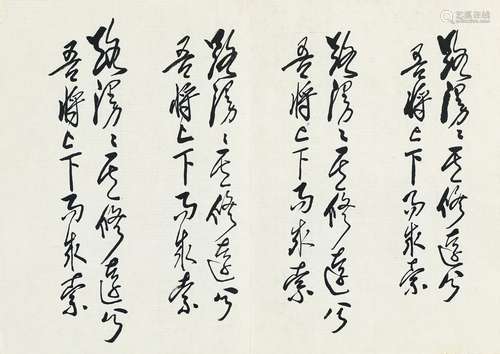 路漫々其修遠兮
吾將上下而求索
路漫々其修遠兮
吾將上下而求索
路漫々其修遠兮
吾將上下而求索
路漫々其修遠兮
吾將上下而求索